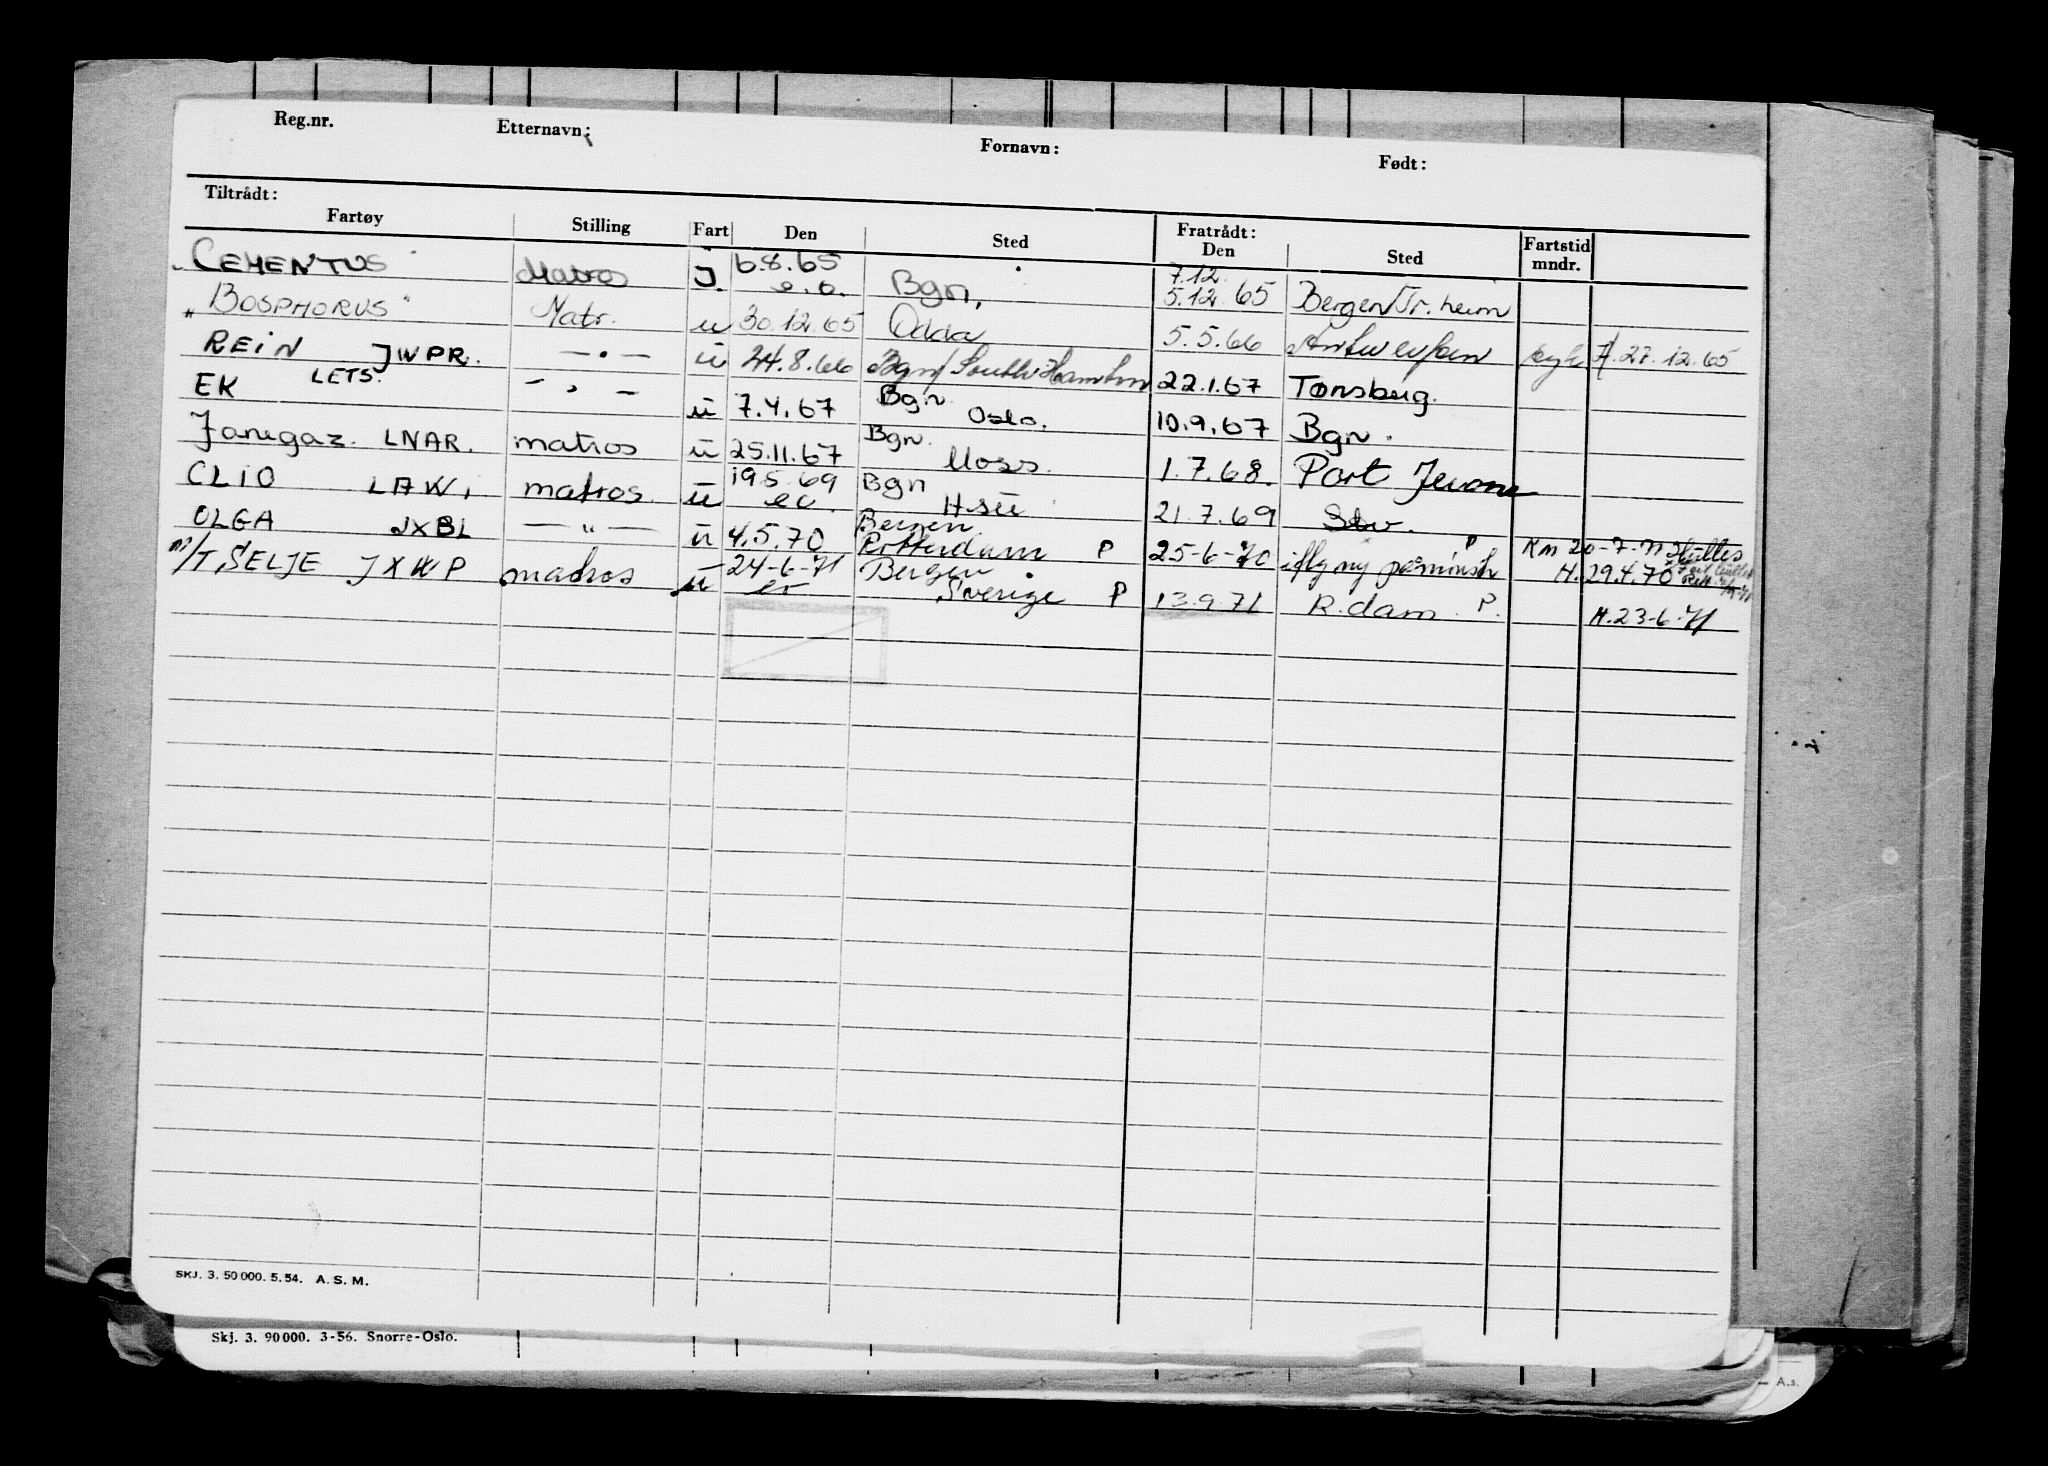 Reg.nr. Etternavn: Fornavn: Født:
Tiltrådt: Fratrådt:
Fartøy Stilling Fart Den Sted Den Sted Fartstid mndr.
"CEMENTUS" Matros J. 6.8.65 e.o. Bgn. 7.12. 5.12.65 Bergen/Tr.heim
"BOSPHORUS" Matr. u 30.12.65 Odda 5.5.66 Antwerpen 7/27.12.65
REIN JWPR. —•— ü 24.8.66 Bgn/SouthHamton 22.1.67 Tønsberg.
EK LETS. —"— ü 7.4.67 Bgn Oslo. 10.9.67 Bgn.
Janegaz. LNAR. matros ü 25.11.67 Bgn. Moss. 1.7.68. Port Jerome
CLIO LAWI matros ü 19.5.69 eo. Bgn H.sü 21.7.69 Stv.
OLGA JXBL —"— ü 4.5.70 Bergen Rotterdam P 25-6-70 iflg ny påmønstr P Km 20-7-71 H. 29.4.70
M/T, SELJE JXWP matros ü 24-6-71 eo Bergen Sverige P 13.9.71 R.dam. P. H.23-6-71
SKJ. 3. 50 000. 5. 54. A. S. M.
Skj. 3. 90 000. 3-56. Snorre-Oslo.
A.s.